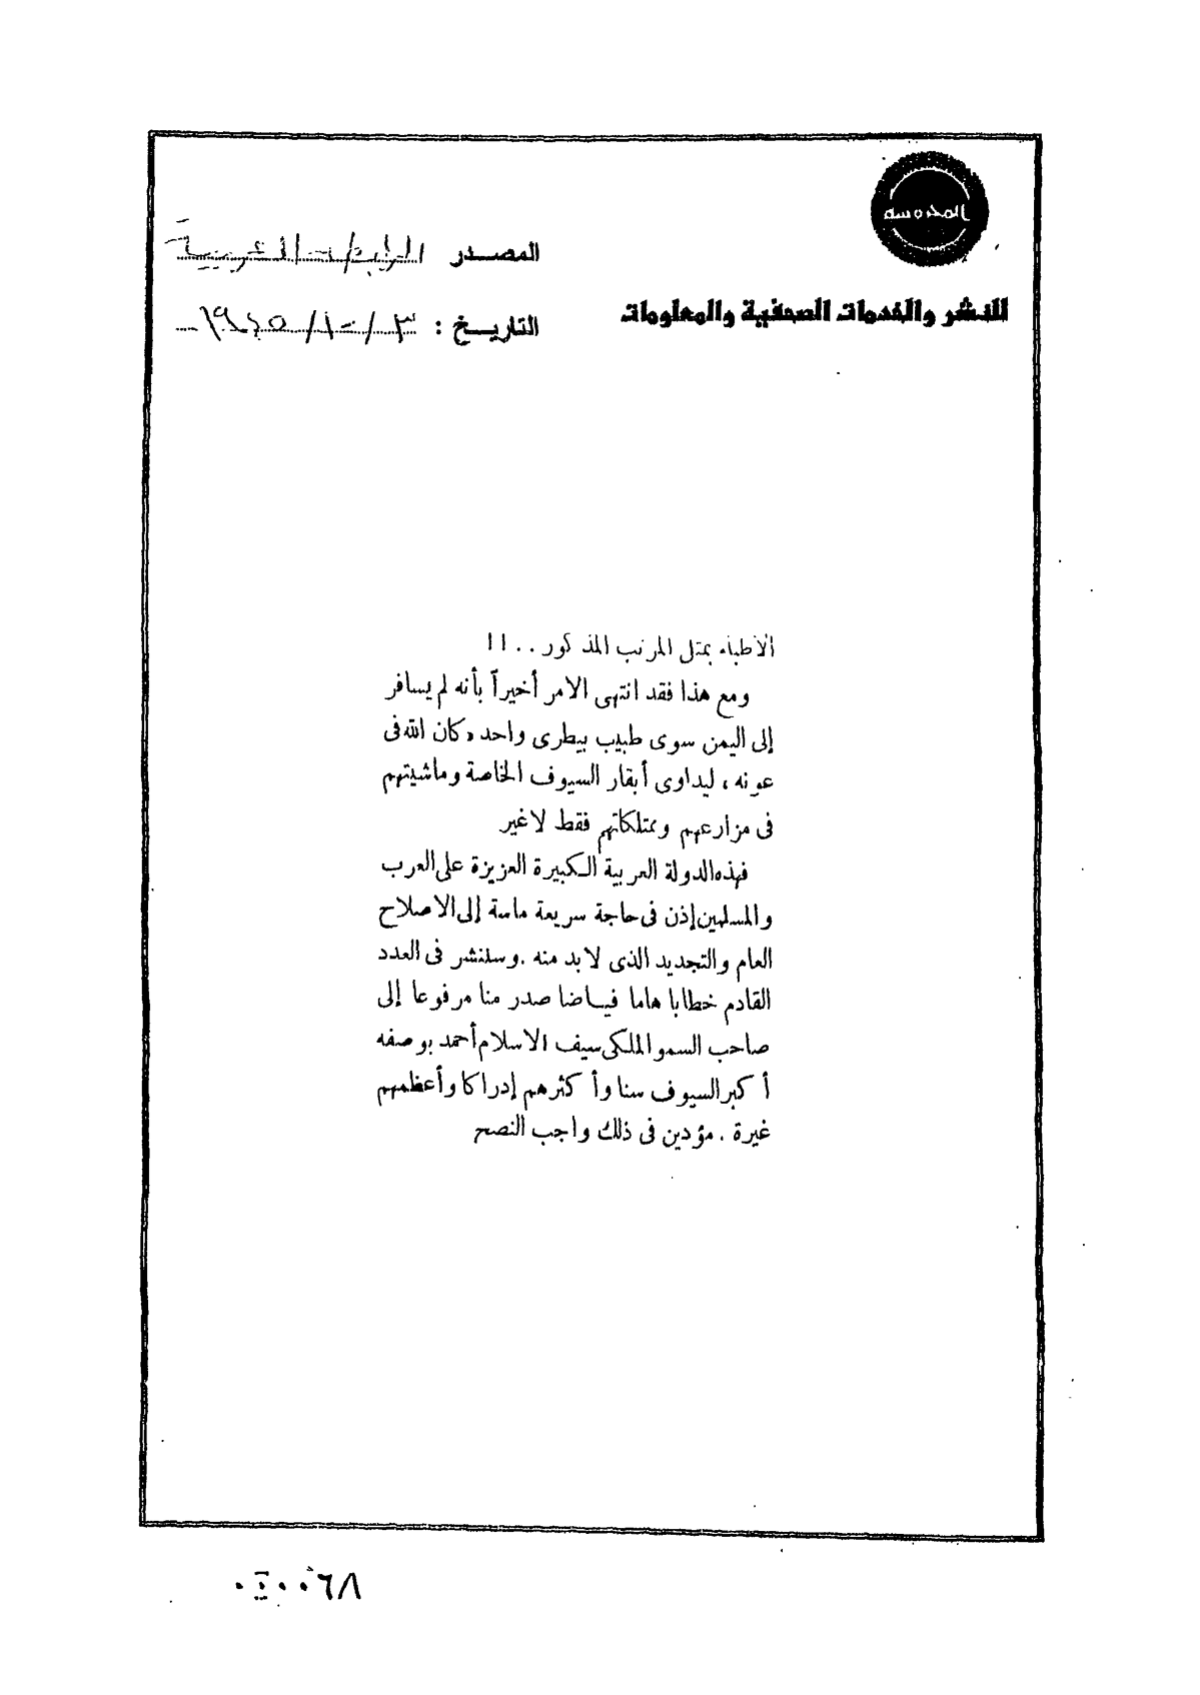 المحروسة
للنشر والخدمات الصحفية والمعلومات
المصدر الرابطة العربية
التاريخ : ٣/١٠/١٩٤٥
الاطباء بمثل المرتب المذكور . . ! !
ومع هذا فقد انتهى الامر أخيراً بأنه لم يسافر
إلى اليمن سوى طبيب بيطرى واحد وكان الله فى
عونه ، ليداوى أبقار السيوف الخاصة وماشيتهم
فى مزارعهم وممتلكاتهم فقط لا غير
فهذه الدولة العربية الكبيرة العزيزة على العرب
والمسلمين إذن فى حاجة سريعة ماسة إلى الاصلاح
العام والتجديد الذى لا بد منه . وسننشر فى العدد
القادم خطابا هاما فياضا صدر منا مرفوعا إلى
صاحب السمو الملكى سيف الاسلام أحمد بوصفه
أكبر السيوف سنا وأكثرهم إدراكا وأعظمهم
غيرة . مؤدين فى ذلك واجب النصح